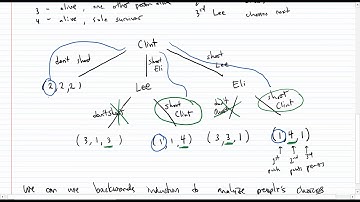 3 - alive, one other person alive
4 - alive, sole survivor
3rd Lee chooses next
Clint
don't shoot
shoot Eli
shoot Lee
(2, 2, 2)
Lee
Eli
don't shoot
shoot Clint
don't shoot
shoot Clint
(3, 1, 3)
(1, 1, 4)
(3, 3, 1)
(1, 4, 1)
1st
2nd
3rd
points
We can use backwards induction to analyze people's choices